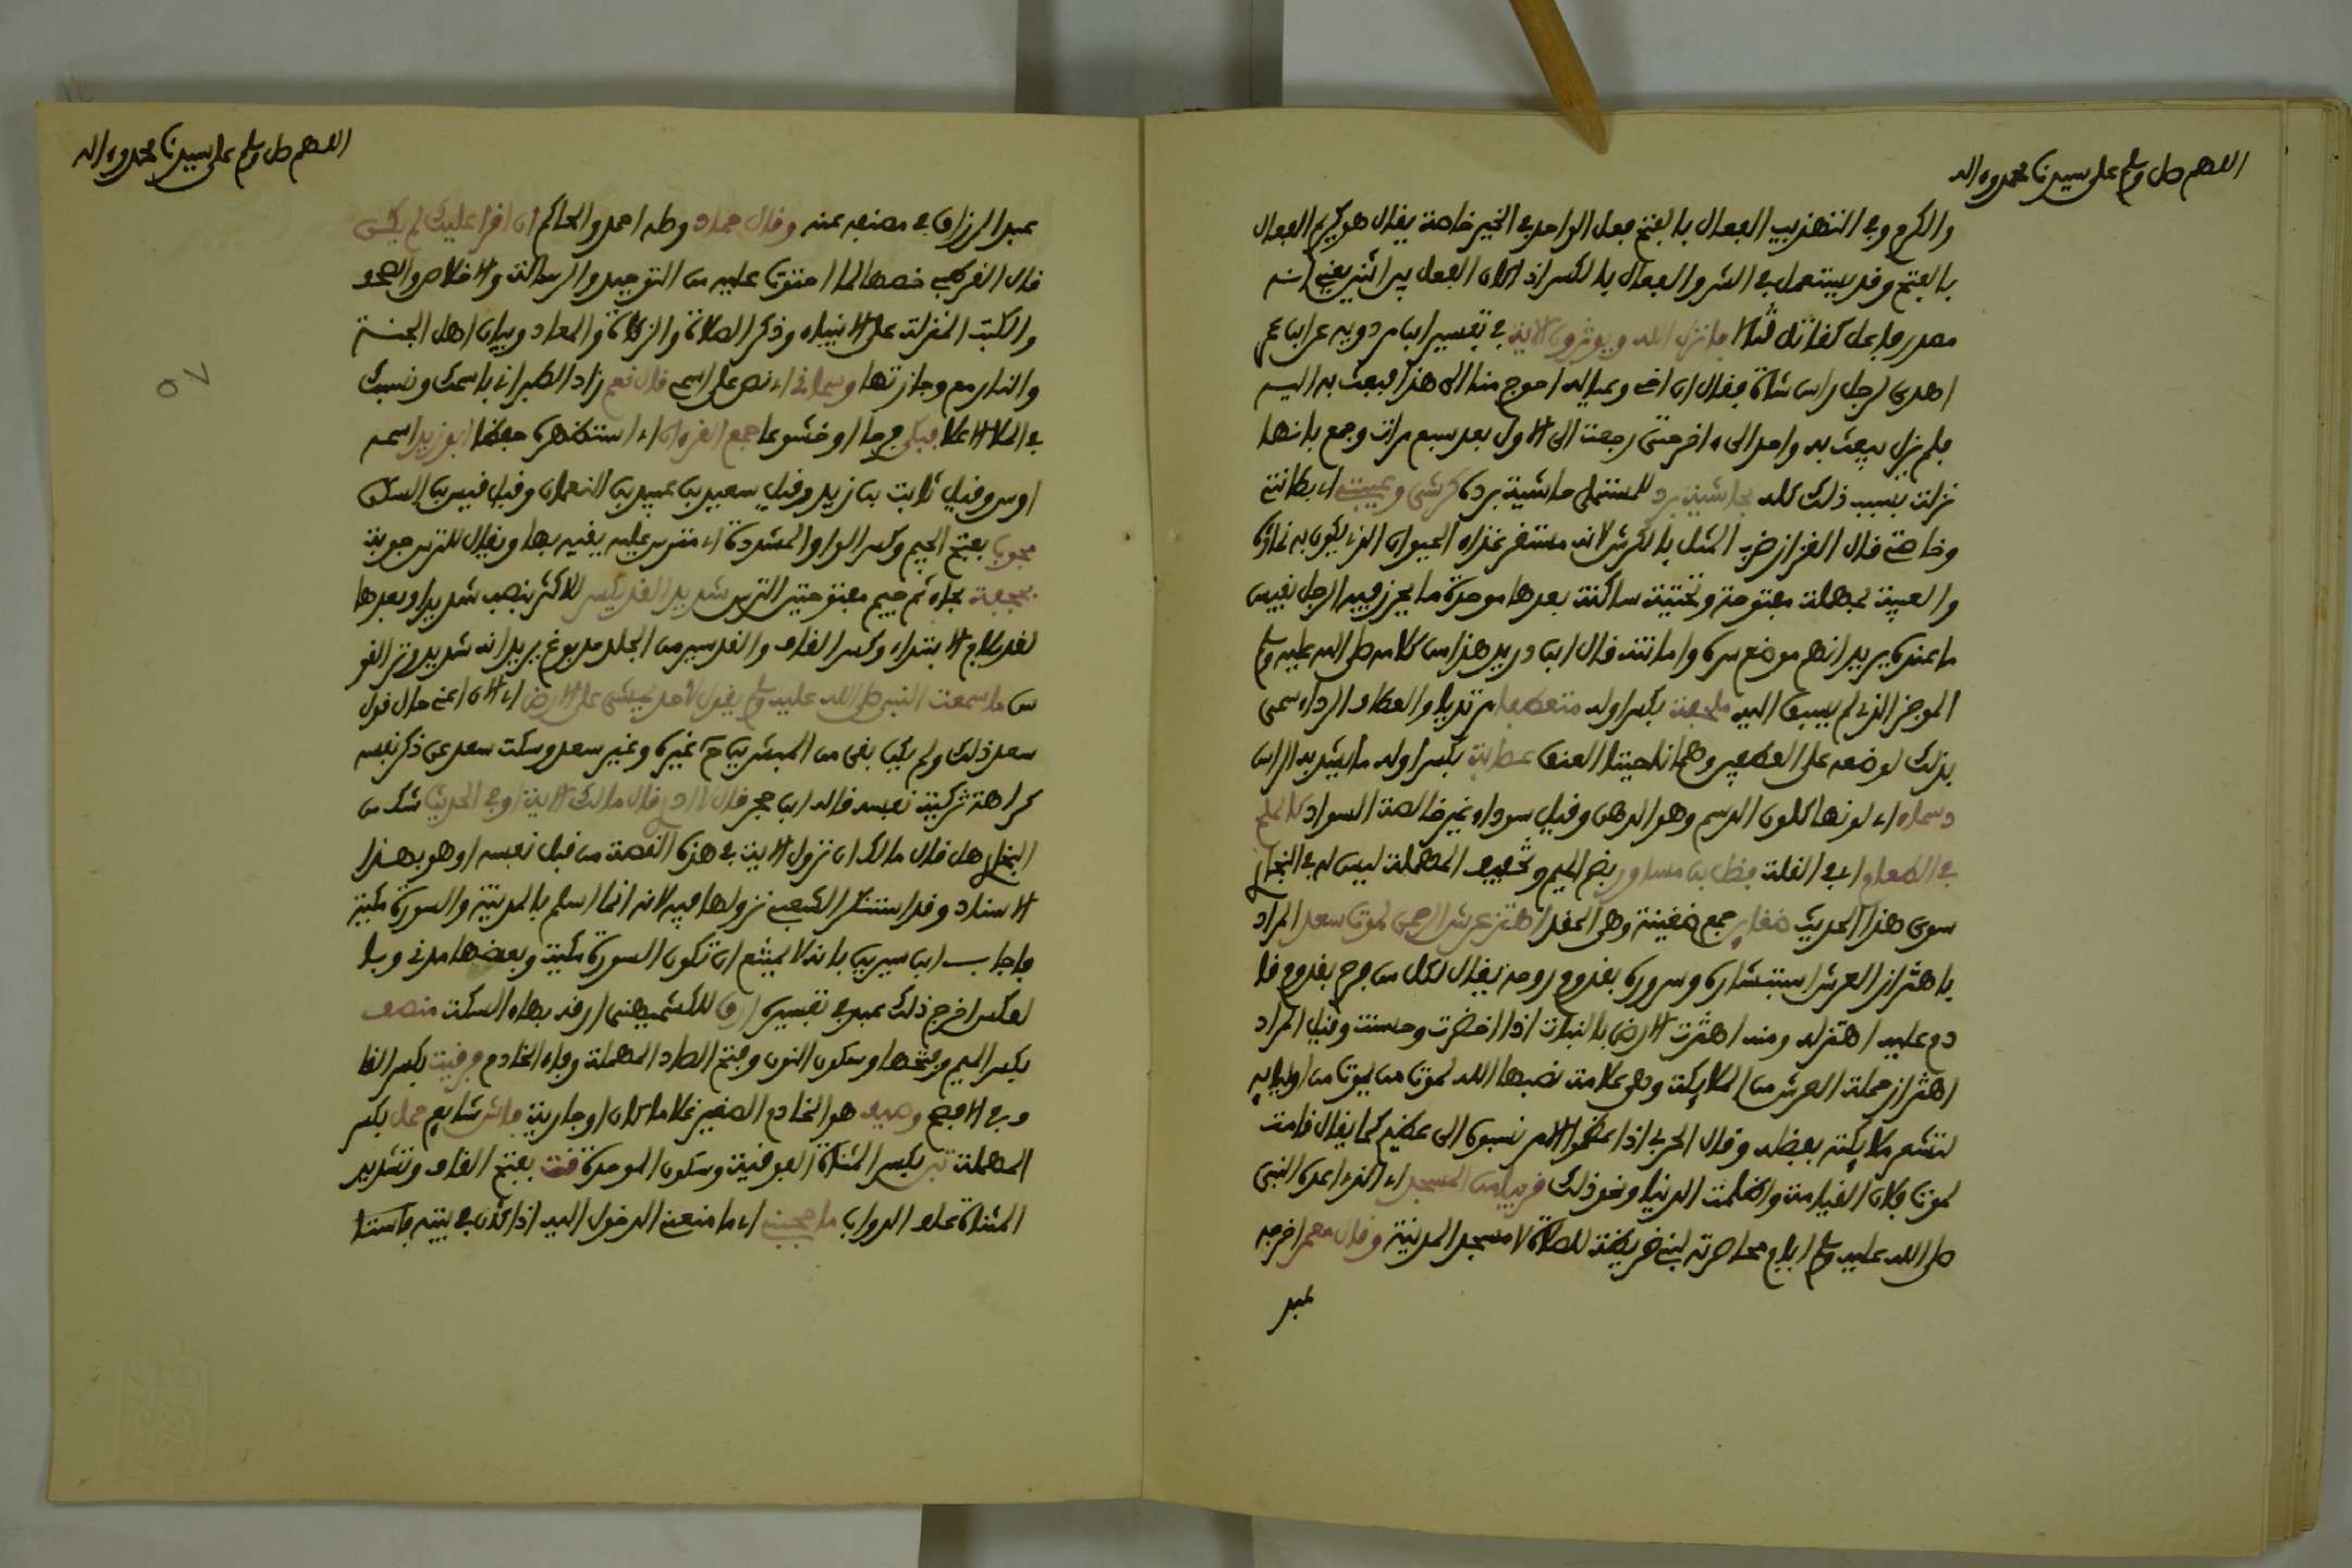 اللهم صل وسلم على سيدنا محمد وءاله
والكرم وفي التهذيب الفعال بالفتح فعل الواحد في الخير خاصة يقال هو كريم الفعال
بالفتح وقد يستعمل في الشر والفعال بالكسر اذا كان الفعل بين اثنين يعني انه
مصدر فاعل كقاتل قتالا فانزل الله ويوثرون الاية في تفسير ابن مردويه عن ابن عمر
اهدي لرجل راس شاة فقال ان اخي وعياله احوج منا الى هذا فبعث به اليه
فلم يزل يبعث به واحد الى ءاخر حتى رجعت الى الاول بعد سبع مرات وجمع بانها
نزلت بسبب ذلك كله بحاشية برد للمستملي حاشية برده كرشي وعيبتي اي بطانتي
وخاصتي قال القزاز ضرب المثل بالكرش لانه مستقر غذاء الحيوان الذي يكون به نماؤه
والعيبة بمهملة مفتوحة وتحتية ساكنة بعدها موحدة ما يحرز فيه الرجل نفيس
ما عنده يريد انهم موضع سره وامانته قال ابن دريد هذا من كلامه صلى الله عليه وسلم
الموجز الذي لم يسبق اليه ملحفة بكسر اوله متعطفا مرتديا والعطاف الرداء سمي
بذلك لوضعه على العطفين وهما ناحيتا العنق عصابة بكسر اوله ما يشد به الراس
دسماء اي لونها كلون الدسم وهو الدهن وقيل سوداء غير خالصة السواد كالملح
في الطعام اي في القلة فضل بن مساور بضم الميم وتخفيف المهملة ليس له في البخاري
سوى هذا الحديث ضغاين جمع ضغينة وهي الحقد اهتز عرش الرحمن لموت سعد المراد
باهتزاز العرش استبشاره وسروره بقدوم روحه يقال لكل من فرح بقدوم قا
دم عليه اهتز له ومنه اهتزت الارض بالنبات اذا اخضرت وحسنت وقيل المراد
اهتزاز حملة العرش من الملايكة وقيل علامة نصبها الله لموت من يموت من اوليايه
لتشعر ملايكته بفضله وقال الحربي اذا عظموا الامر نسبوه الى عظيم كما يقال قامت
لموت فلان القيامة واظلمت الدنيا ونحو ذلك قريبا من المسجد اي الذي اعده النبي
صلى الله عليه وسلم ايام محاصرته لبني قريظة للصلاة لا مسجد المدينة وقال معمر اخرجه
عبد
اللهم صل وسلم على سيدنا محمد وءاله
عبد الرزاق في مصنفه عنه وقال حماد وصله احمد والحاكم ان اقرا عليك لم يكن
قال القرطبي خصها لما احتوت عليه من التوحيد والرسالة والاخلاص والصحف
والكتب المنزلة على الانبياء وذكر الصلاة والزكاة والمعاد وبيان اهل الجنة
والنار مع وجازتها وسماني اي نص على اسمي قال نعم زاد الطبراني باسمك ونسبك
في الملا الاعلا فبكى فرحا او خشوعا جمع القرءان اي استظهره حفظا ابو زيد اسمه
اوس وقيل ثابت بن زيد وقيل سعيد بن عبيد بن النعمان وقيل قيس بن السكن
مجوب بفتح الجيم وكسر الواو المشددة اي مترس عليه يقيه بها ويقال للترس جوبة
بحجفة بحاء ثم جيم مفتوحتين الترس شديد القد يكسر للاكثر بنصب شديدا وبعدها
لقد بلام الابتداء وكسر القاف والقد سير من الجلد مدبوغ يريد انه شديد وتر القو
س ما سمعت النبي صلى الله عليه وسلم يقول لاحد يمشي على الارض اي الان اعني حال قول
سعد ذلك ولم يكن بقي من المبشرين ح غيره وغير سعد وسكت سعد عن ذكر نفسه
كراهة تزكية نفسه قاله ابن حجر قال لا ادري قال مالك الاية او في الحديث شك من
البخاري هل قال مالك ان نزول الاية في هذه القصة من قبل نفسه او هو بهذا
الاسناد وقد استنكر الشعبي نزولها فيه لانه انما اسلم بالمدينة والسورة مكية
واجاب ابن سيرين بانه لا يمتنع ان تكون السورة مكية وبعضها مدني وبا
لعكس اخرج ذلك عبد في تفسيره ارق للكشميهني ارقه بهاء السكت منصف
بكسر الميم وفتحها وسكون النون وفتح الصاد المهملة وفاء الخادم فرقيت بكسر القا
ف في الافصح وصيف هو الخادم الصغير غلاما كان او جارية فاش شايع حمل بكسر
المهملة تبن بكسر المثناة الفوقية وسكون الموحدة قت بفتح القاف وتشديد
المثناة علف الدواب ما حجبني اي ما منعني الدخول اليه اذا كان في بيته فاستا